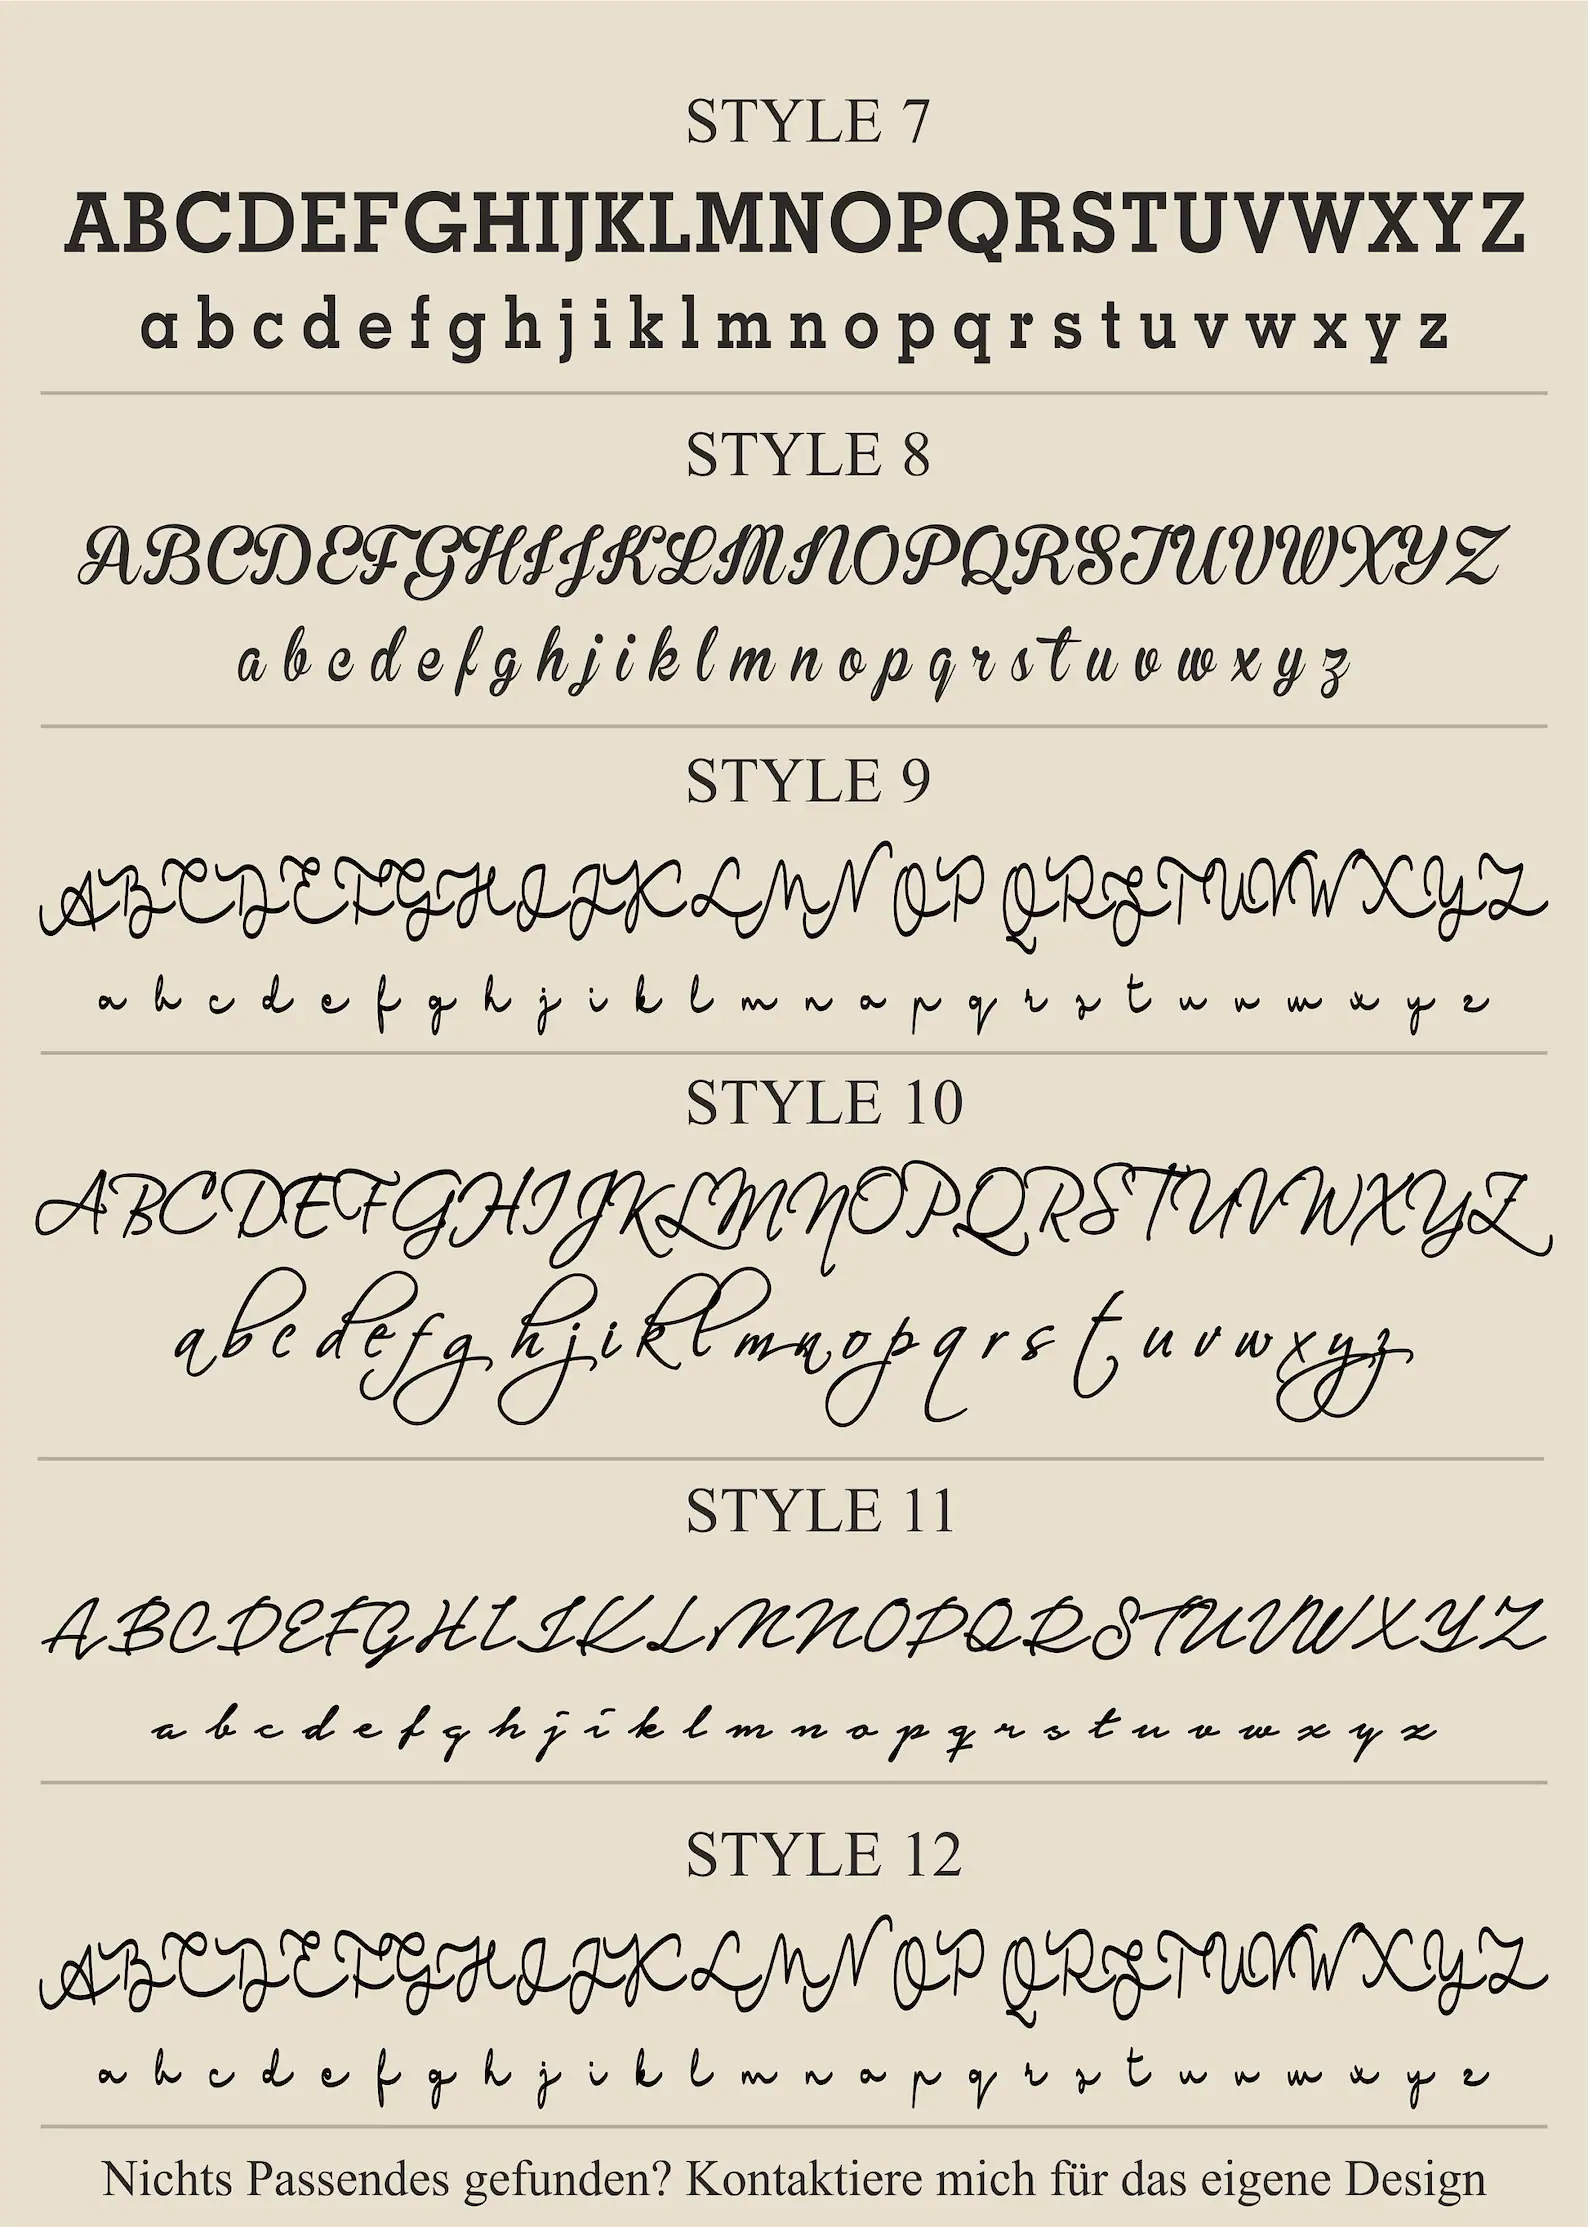 STYLE 7
ABCDEFGHIJKLMNOPQRSTUVWXYZ
a b c d e f g h j i k l m n o p q r s t u v w x y z
STYLE 8
ABCDEFGHIJKLMNOPQRSTUVWXYZ
a b c d e f g h j i k l m n o p q r s t u v w x y z
STYLE 9
ABCDEFGHIJKLMNOPQRSTUVWXYZ
a b c d e f g h j i k l m n o p q r s t u v w x y z
STYLE 10
ABCDEFGHIJKLMNOPQRSTUVWXYZ
a b c d e f g h j i k l m n o p q r s t u v w x y z
STYLE 11
ABCDEFGHIJKLMNOPQRSTUVWXYZ
a b c d e f g h j i k l m n o p q r s t u v w x y z
STYLE 12
ABCDEFGHIJKLMNOPQRSTUVWXYZ
a b c d e f g h j i k l m n o p q r s t u v w x y z
Nichts Passendes gefunden? Kontaktiere mich für das eigene Design